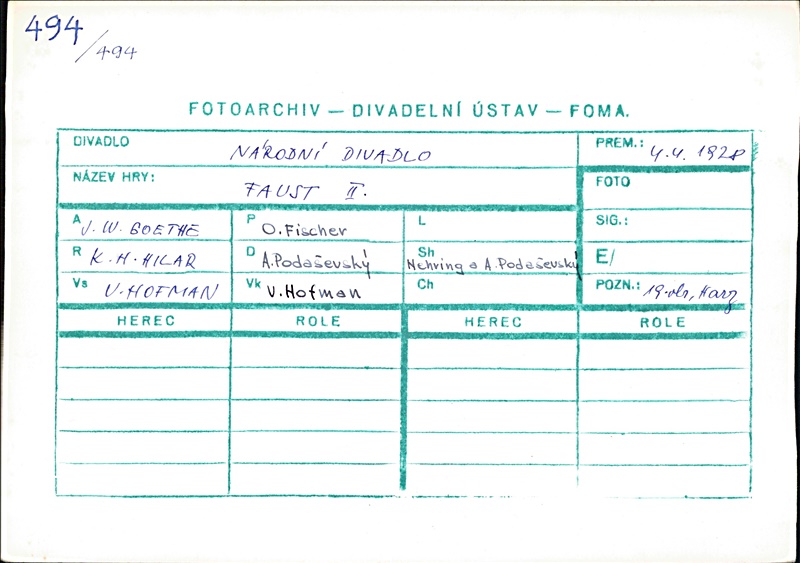 494
/494
FOTOARCHIV — DIVADELNÍ ÚSTAV — FOMA.
DIVADLO NÁRODNÍ DIVADLO
PREM.: 4.4. 1928
NÁZEV HRY: FAUST II.
FOTO
A J. W. GOETHE
P O. Fischer
L
SIG.:
R K. H. HILAR
D A. Podaševský
Sh Nehring a A. Podaševský
E/
Vs V. HOFMAN
Vk V. Hofman
Ch
POZN.: 19.
HEREC ROLE HEREC ROLE